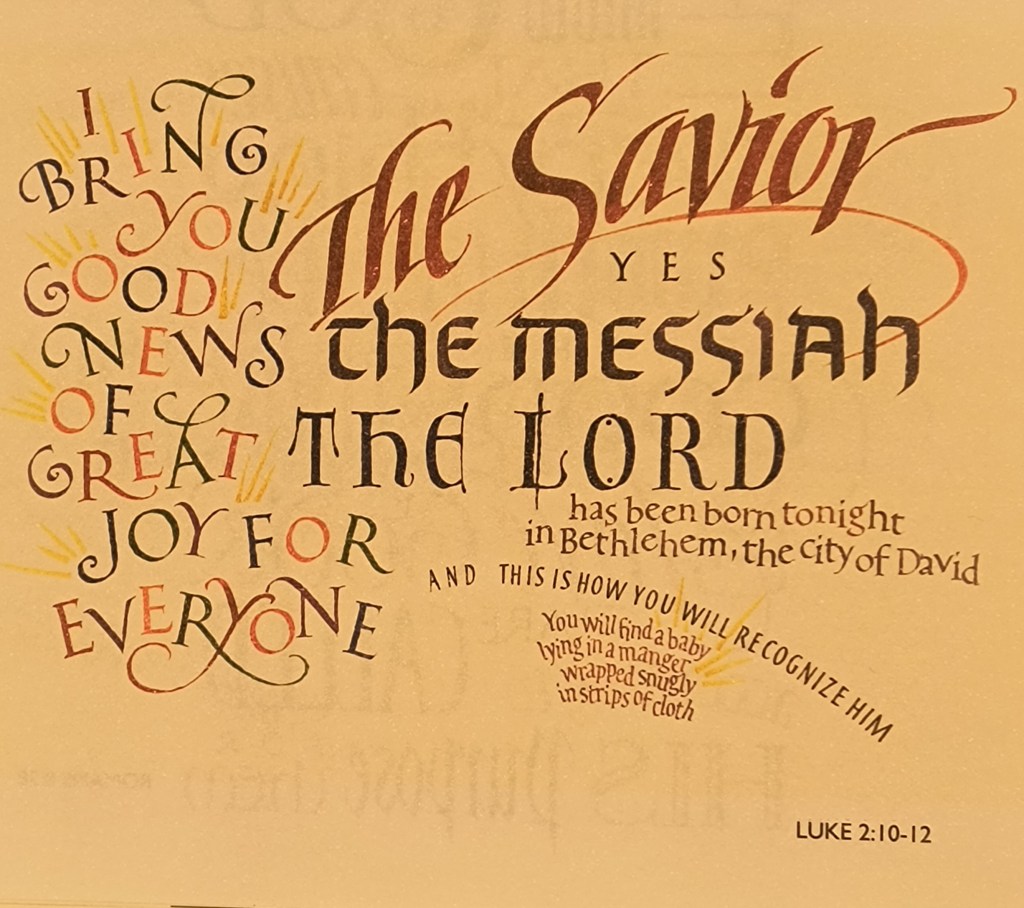 I
BRING
YOU
GOOD
NEWS
OF
GREAT
JOY FOR
EVERYONE
The Savior
YES
THE MESSIAH
THE LORD
has been born tonight
in Bethlehem, the city of David
AND THIS IS HOW YOU WILL RECOGNIZE HIM
You will find a baby
lying in a manger
wrapped snugly
in strips of cloth
LUKE 2:10-12